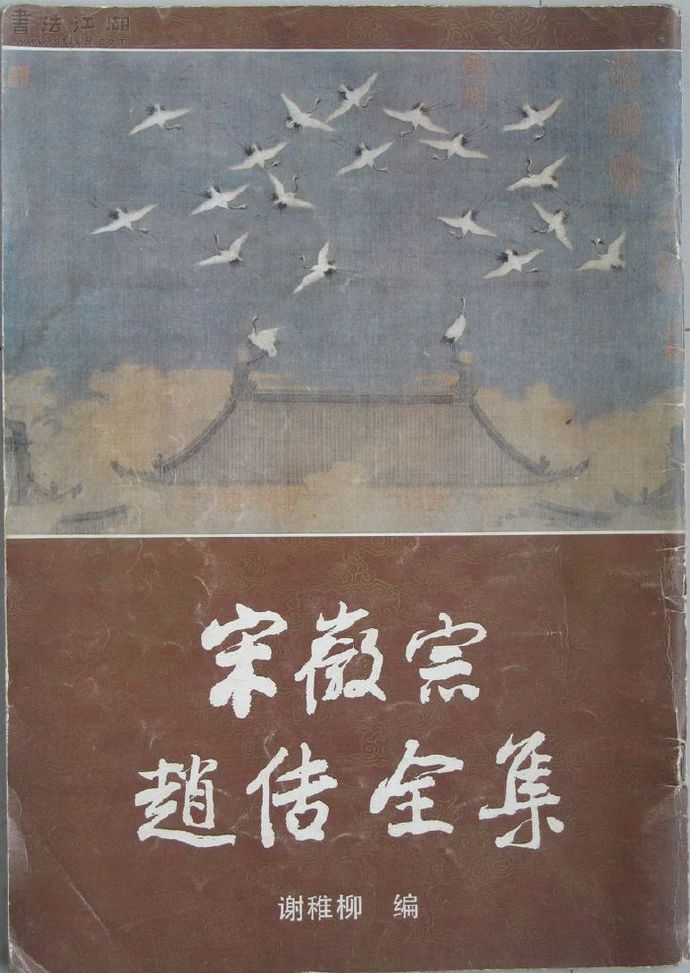 書法江湖
www.sf108.com
宋徽宗
趙佶全集
谢稚柳 编